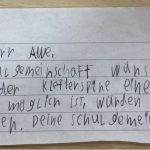 rr Alle.
ulgemeinschaft wüns
der Kletterspine eine
möglich ist, würden
en. Deine Schulgemei